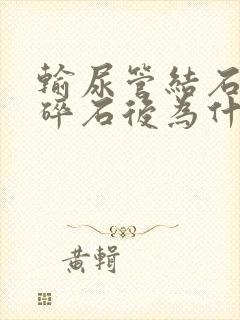 輸尿管結石
碎石後為什
黃輯